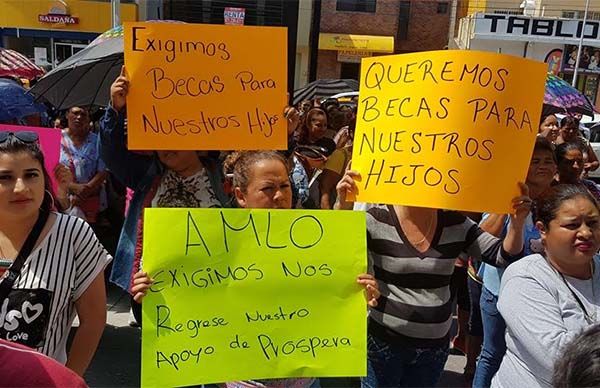 SALDAÑA
RENTA
TABLO
Exigimos
Becas Para
Nuestros Hijos
QUEREMOS
BECAS PARA
NUESTROS
HIJOS
AMLO
EXIGIMOS NOS
Regrese Nuestro
Apoyo de Prospera
Love